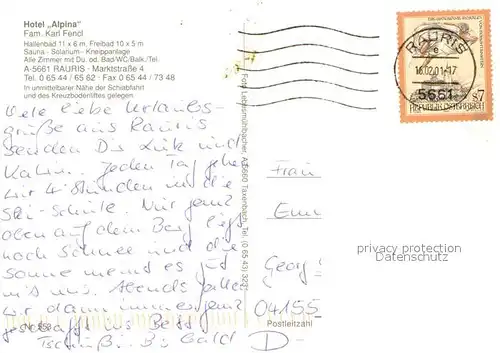 Hotel „Alpina"
Fam. Karl Fencl
Hallenbad 11 x 6 m, Freibad 10 x 5 m
Sauna - Solarium - Kneippanlage
Alle Zimmer mit Du. od. Bad/WC/Balk./Tel.
A-5661 RAURIS - Marktstraße 4
Tel. 0 65 44 / 65 62 - Fax 0 65 44 / 73 48
In unmittelbarer Nähe der Schiabfahrt
und des Kreuzbodenliftes gelegen.
Viele liebe Urlaubs-
grüße aus Rauris
senden Dir und
Katrin. Jeden Tag gehen
wir 4 Stunden in die
Ski-Schule. Nur ganz
oben auf dem Berg liegt
noch Schnee und die
Sonne meint es gut
mit uns. Abends fallen
wir dann immer ganz
geschafft ins Bett
Tschüß Bis Bald
Nr. 858
Foto Laubmühlbacher, A-5660 Taxenbach, Tel. (0 65 43) 323
RAURIS
e
16.02.01-17
5661
REPUBLIK ÖSTERREICH
S7
Frau
Georg
04155
Postleitzahl
D-
privacy protection
Datenschutz